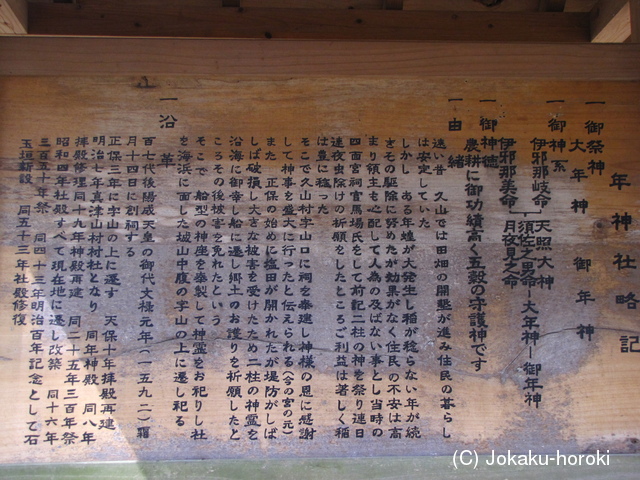 年神社略記
一御祭神
大年神 御年神
一御神系
伊邪那岐命 天照大神
須佐之男命―大年神―御年神
伊邪那美命 月夜見之命
一御神徳
農耕に御功績高く五穀の守護神です
一由緒
遠い昔 久山では田畑の開墾が進み住民の暮らし
は安定していた
しかし ある年蝗が大発生し稲が稔らない年が続
きその駆除に努めたが効果がなく住民の不安は高
まり領主も心配して人為の及ばない事とし当時の
四面宮祠官馬場氏をして前記二柱の神を祭り連日
連夜虫除けの祈願をしたところご利益は著しく稲
は豊に稔った
そこで久山村字山口に祠を奉建し神様の恩に感謝
して神事を盛大に行ったと伝えられる(今の宮の元)
また 正保の始めに塩田が開かれたが堤防がしば
しば破損し大きな被害を受けたため二柱の神霊を
沿海に御幸し船に遷し郷土のお護りを祈願したと
ころその後被害を免れたという
そこで 船型の神座を奉製して神霊をお祀りし社
を海浜に面した城山中腹の字山の上に遷し祀る
一沿革
百七代後陽成天皇の御代文禄元年(一五九二)霜
月十四日に創祠する
正保三年に字山の上に遷す 天保十年拝殿再建
明治七年真津山村村社となり 同年神殿 同八年
拝殿修理同十九年神殿再建 同二十五年三百年祭
昭和四年社殿すべて現在地に遷し改築 同十六年
三百五十年祭 同四十三年明治百年記念として石
玉垣新設 同五十三年社殿修復
(C) Jokaku-horoki